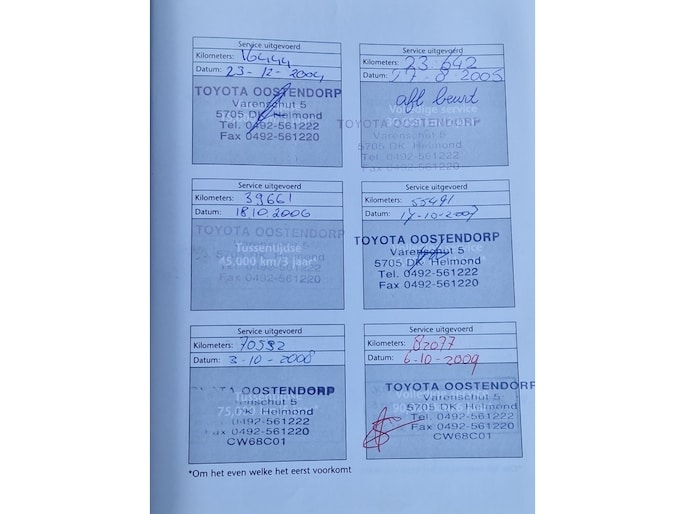 Service uitgevoerd
Kilometers: 16444
Datum: 23-12-2004
TOYOTA OOSTENDORP
Varenschut 5
5705 DK Helmond
Tel. 0492-561222
Fax 0492-561220
Service uitgevoerd
Kilometers: 23 642
Datum: 17-8-2005
afl beurt
Volledige service
TOYOTA OOSTENDORP
Varenschut 5
5705 DK Helmond
Tel. 0492-561222
Fax 0492-561220
Service uitgevoerd
Kilometers: 39661
Datum: 18 10 2006
TOYOTA OOSTENDORP
Tussentijdse
45,000 km/3 jaar*
Fax 0492-561220
Service uitgevoerd
Kilometers: 55491
Datum: 17-10-2007
TOYOTA OOSTENDORP
Varenschut 5
5705 DK Helmond
Tel. 0492-561222
Fax 0492-561220
Service uitgevoerd
Kilometers: 70592
Datum: 3-10-2008
TOYOTA OOSTENDORP
DK Helmond
0492-561222
Fax 0492-561220
CW68C01
Service uitgevoerd
Kilometers: 82077
Datum: 6-10-2009
TOYOTA OOSTENDORP
Varenschut 5
5705 DK Helmond
Tel. 0492-561222
Fax 0492-561220
CW68C01
*Om het even welke het eerst voorkomt